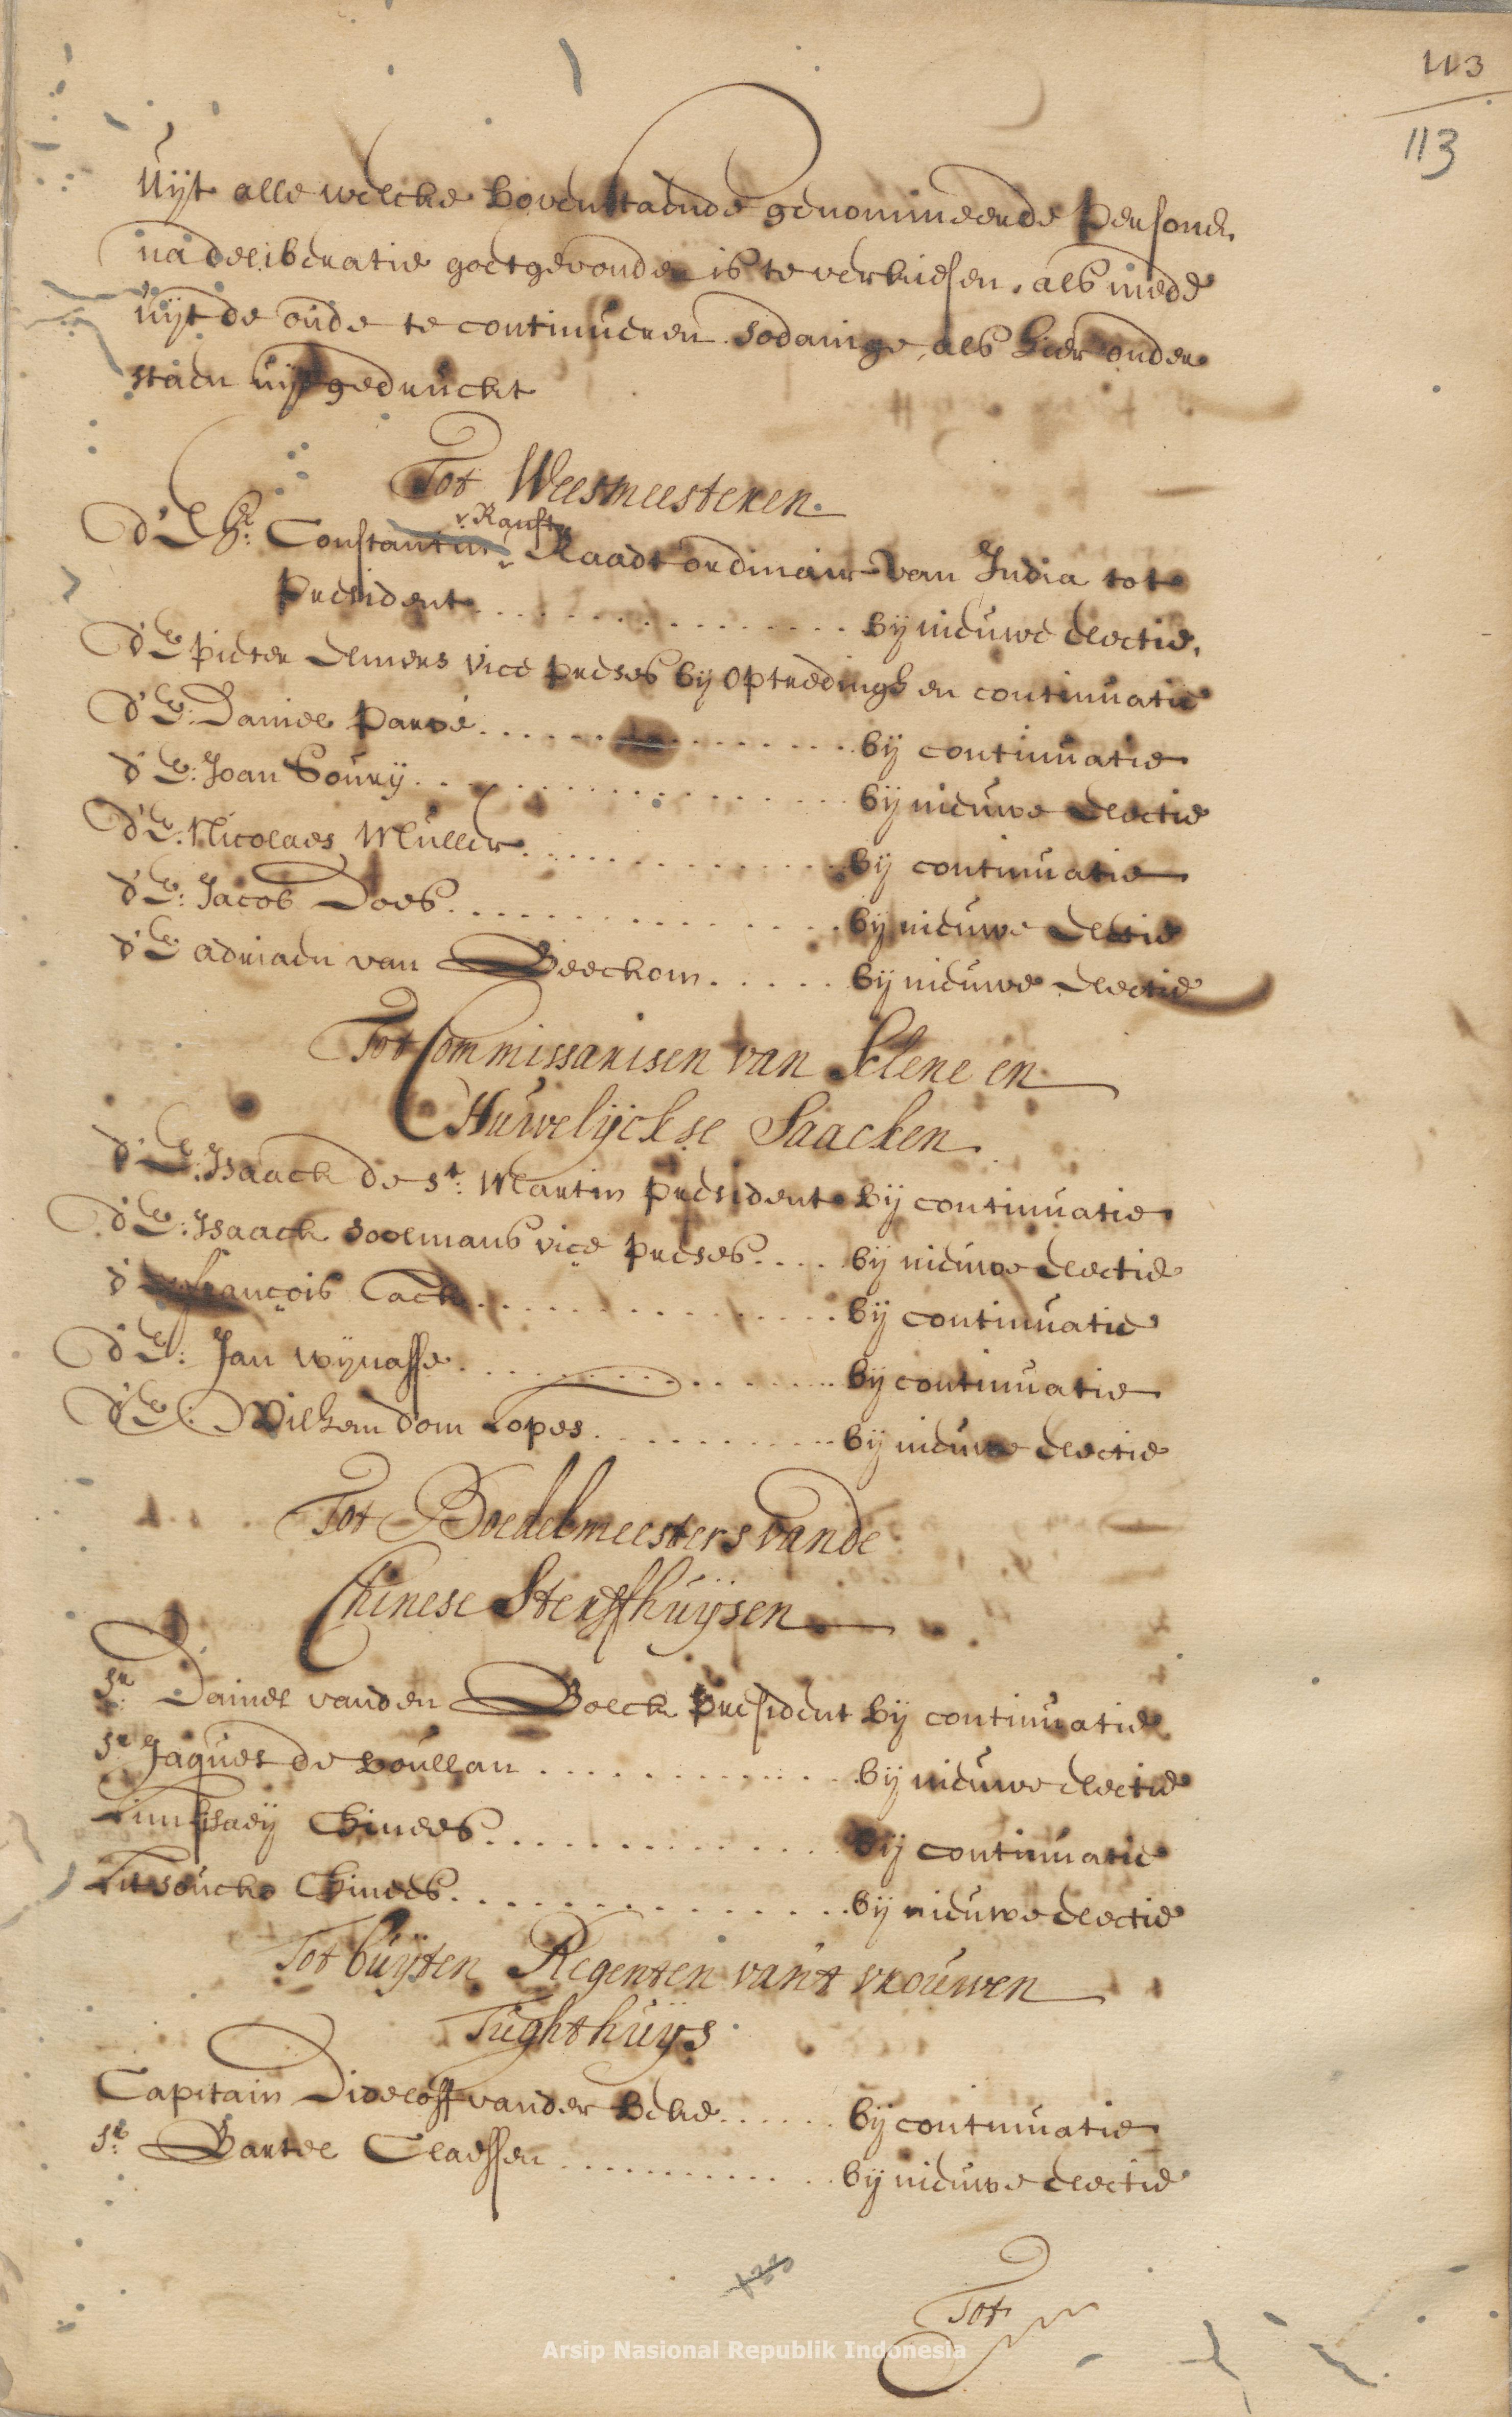 113
113
Uijt alle welcke bovenstaende genomineerde persoon.
na deliberatie goetgevonden is te verkiesen, als mede
uijt de oude te continueren sodanige, als hier onder
staen uijtgedruckt
Tot Weesmeesteren.
v. Ranst
d'E Hr: Constantin Raadt ordinair van India tot
President . . . . . . . . . . . . . . . bij nieuwe electie,
d'E pieter Elmers vice preses bij optredingh en continuatie
d'E: Daniel Parvé . . . . . . . . . . . . . . . bij continuatie
d'E: Joan Boury . . . . . . . . . . . . . . . bij nieuwe electie
d'E: Nicolaes Muller . . . . . . . . . . . . . bij continuatie
d'E: Jacob Does . . . . . . . . . . . . . . . bij nieuwe electie
d'E adriaen van Beeckom . . . . . bij nieuwe electie
Tot Commissarisen van Clene en
Huwelijckse Saacken
d'E: Isaack de St: Martin president bij continuatie
d'E: Isaack Soolmans vice preses . . . . bij nieuwe electie
d' françois Tack . . . . . . . . . . . . . . bij continuatie
d'E: Jan wijnasse . . . . . . . . . . . . . bij continuatie
d'E: Wilhem dom Lopes . . . . . . . . . . bij nieuwe electie
Tot Boedelmeesters vande
Chinese Sterfhuijsen
Sr: Daniel vanden Bolck president bij continuatie
Sr Jaques de Boullan . . . . . . . . . . . . bij nieuwe electie
Limsisaeij Chinees . . . . . . . . . . . . . bij continuatie
Litsoucko Chinees . . . . . . . . . . . . . . bij nieuwe electie
Tot buijten Regenten van't vrouwen
Tughthuijs
Capitain Dideloff vander Beke . . . . . . bij continuatie
Sr: Bartel Claessen . . . . . . . . . . . bij nieuwe electie
Tot
Arsip Nasional Republik Indonesia